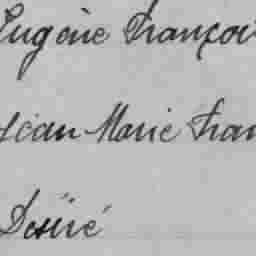 Eugène Françoi
Jean Marie Fran
Désiré